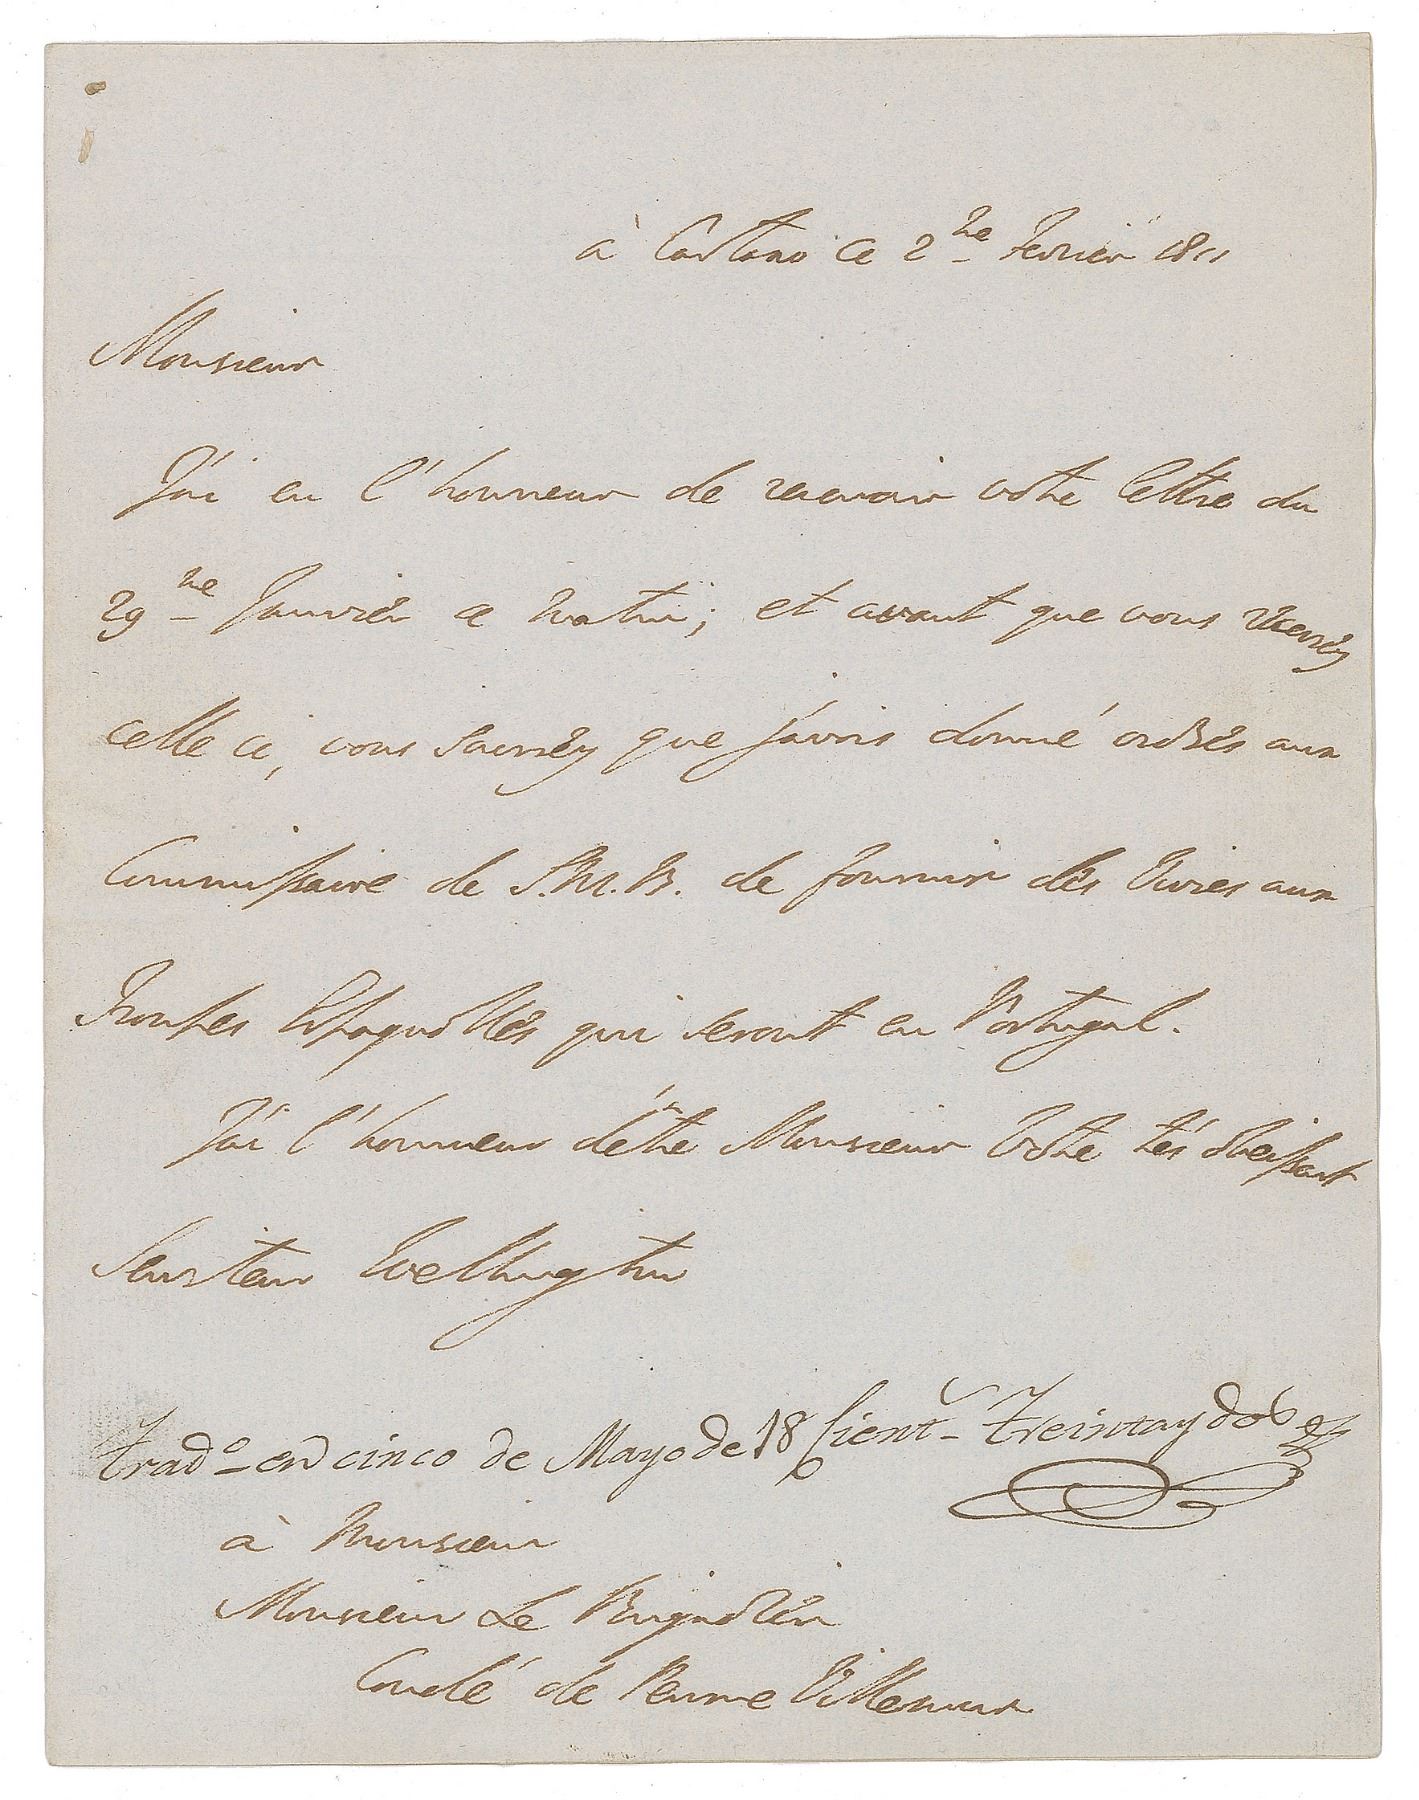 à Cartaxo ce 2me Fevrier 1811
Monsieur
J'ai eu l'honneur de recevoir votre lettre du
29me Janvier ce matin; et avant que vous recevréz
celle ci, vous sauréz que j'avois donné ordres aux
Commissaire de S.M.B. de fournir des Vivres aux
Troupes Espagnolles qui seront en Portugal.
J'ai l'honneur d'étre Monsieur Votre trés obeissant
Serviteur Wellington
Tradº en cinco de Mayo de 18 cient.s treinta y dos
à Monsieur
Monsieur Le Brigadier
Condé de Penne Villemur